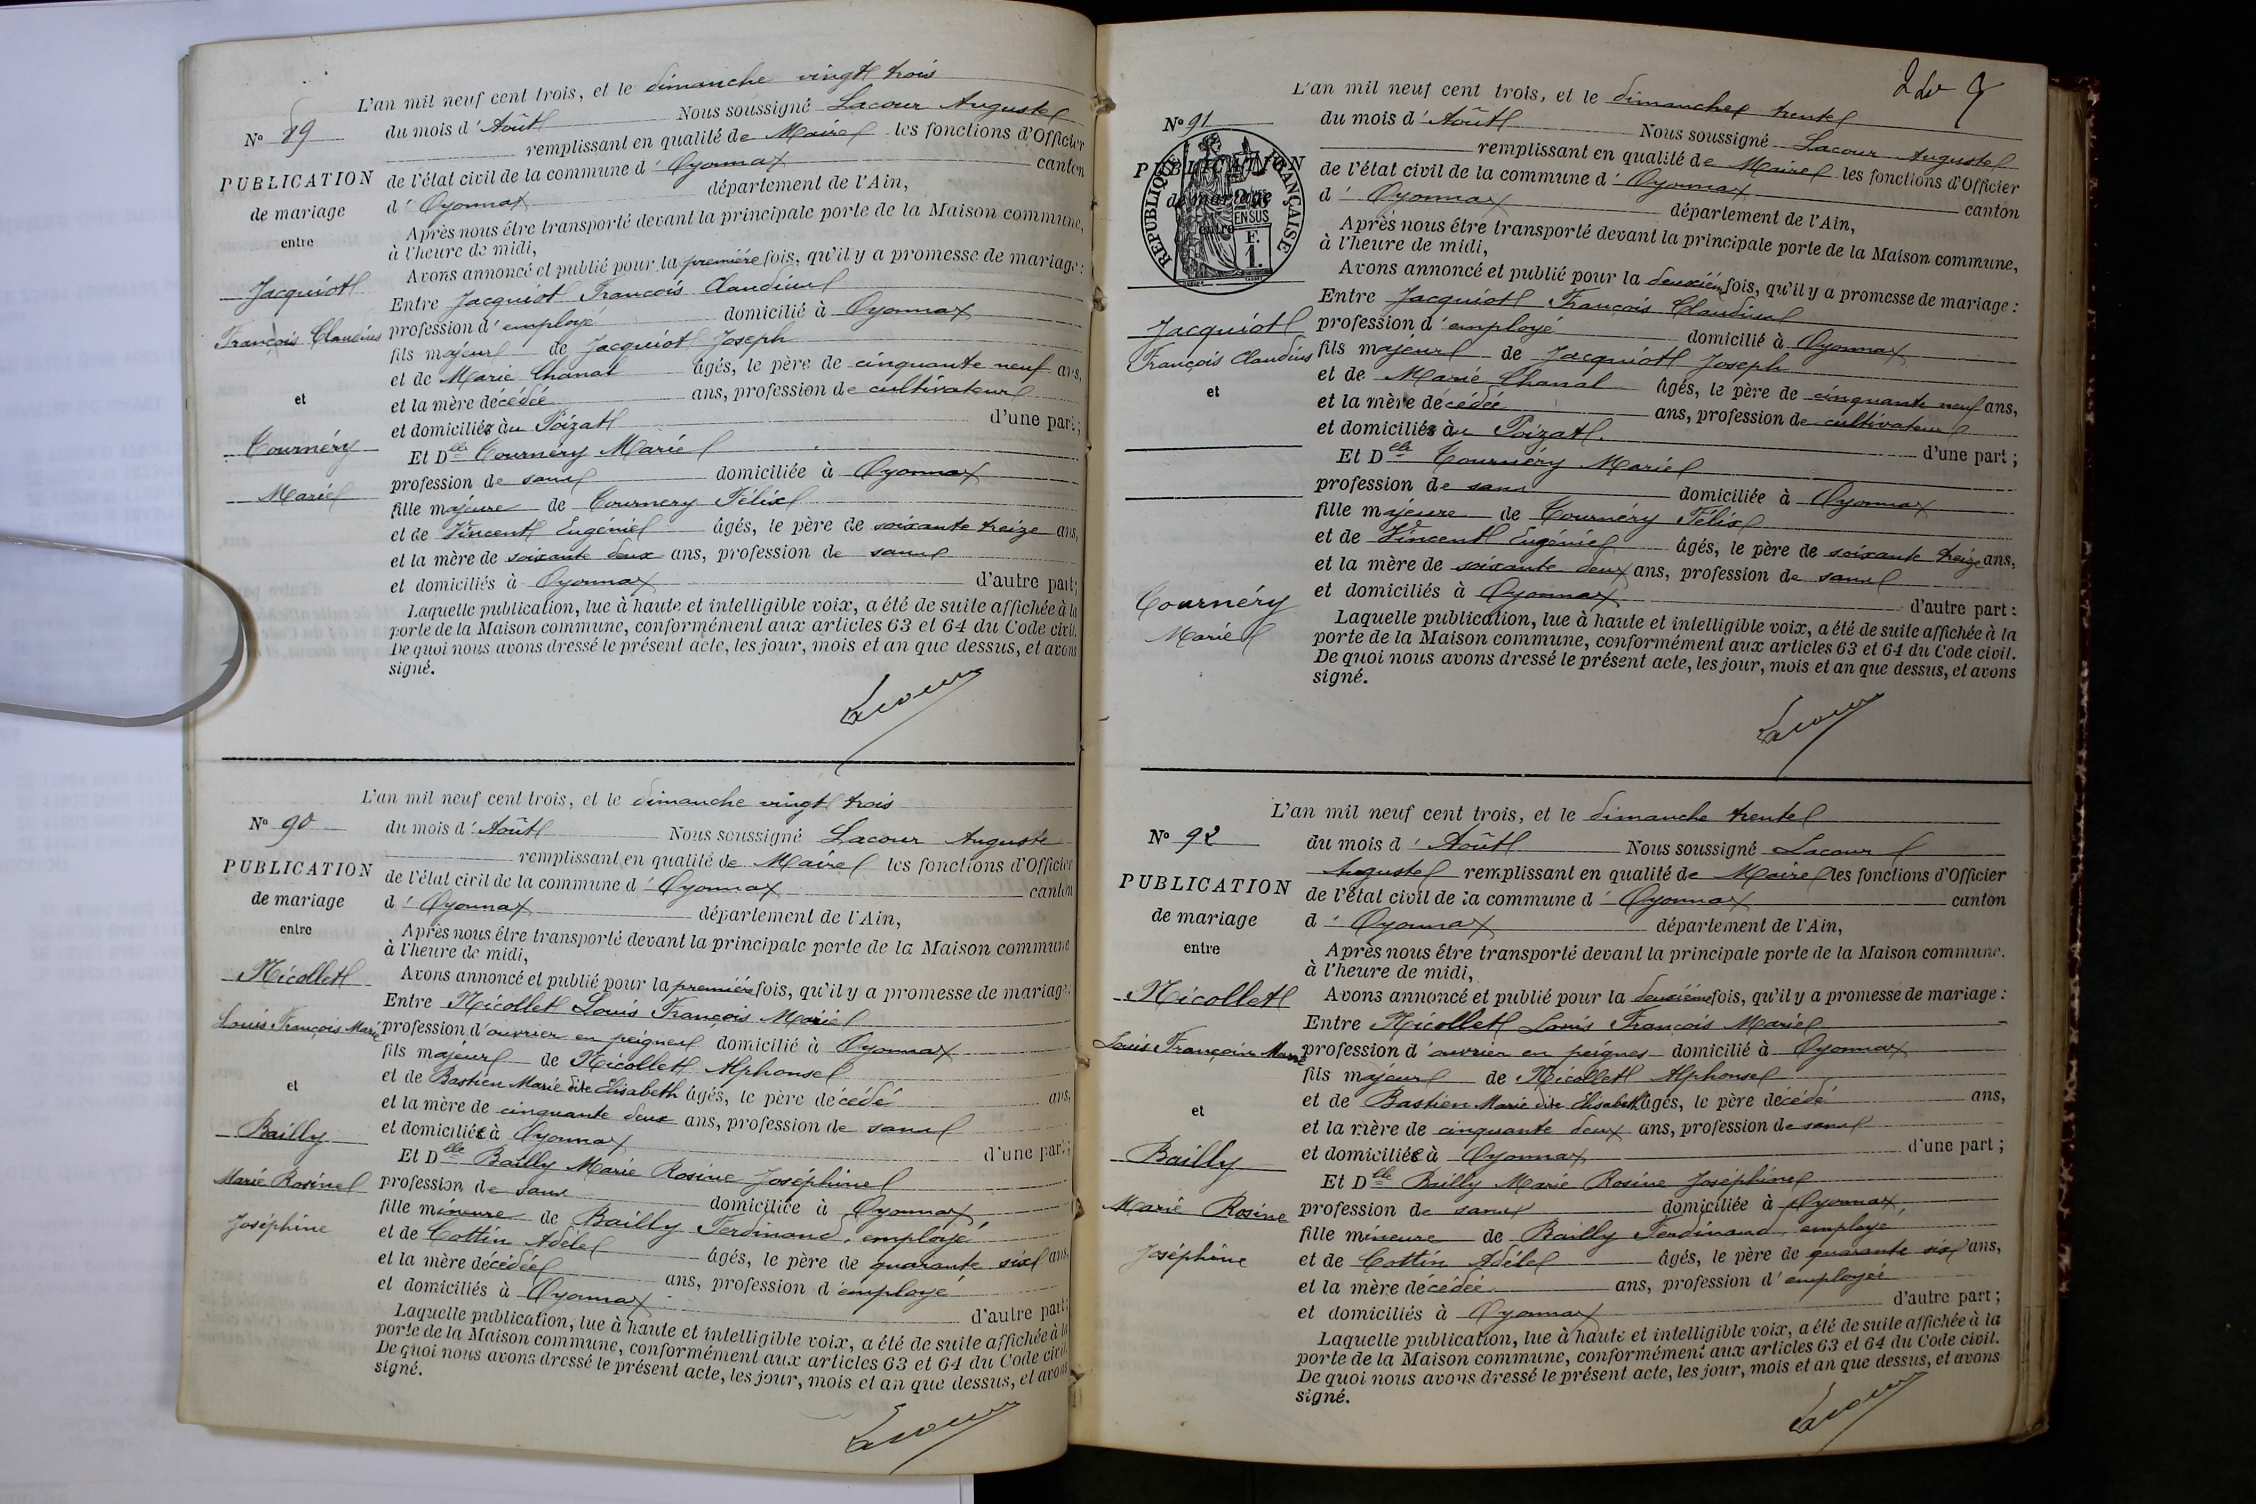 L'an mil neuf cent trois, et le dimanche vingt trois
N° 89
du mois d'Août Nous soussigné Lacour Auguste
remplissant en qualité de Maire les fonctions d'Officier
PUBLICATION
de mariage
entre
de l'état civil de la commune d'Oyonnax canton
d'Oyonnax département de l'Ain,
Après nous être transporté devant la principale porte de la Maison commune,
à l'heure de midi,
Avons annoncé et publié pour la première fois, qu'il y a promesse de mariage:
Jacquiot
François Claudius
et
Tournéry
Marie
Entre Jacquiot François Claudius
profession d'employé domicilié à Oyonnax
fils majeur de Jacquiot Joseph
et de Marie Chanal âgés, le père de cinquante neuf ans,
et la mère décédée ans, profession de cultivateur
et domiciliés au Poizat d'une part;
Et Dlle Tournéry Marie
profession de sans domiciliée à Oyonnax
fille majeure de Tournery Félix
et de Vincent Eugénie âgés, le père de soixante treize ans,
et la mère de soixante deux ans, profession de sans
et domiciliés à Oyonnax d'autre part;
Laquelle publication, lue à haute et intelligible voix, a été de suite affichée à la
porte de la Maison commune, conformément aux articles 63 et 64 du Code civil.
De quoi nous avons dressé le présent acte, les jour, mois et an que dessus, et avons
signé.
Lacour
L'an mil neuf cent trois, et le dimanche vingt trois
N° 90
du mois d'Août Nous soussigné Lacour Auguste
remplissant en qualité de Maire les fonctions d'Officier
PUBLICATION
de mariage
entre
de l'état civil de la commune d'Oyonnax canton
d'Oyonnax département de l'Ain,
Après nous être transporté devant la principale porte de la Maison commune
à l'heure de midi,
Avons annoncé et publié pour la première fois, qu'il y a promesse de mariage.
Nicollet
Louis François Marie
et
Bailly
Marie Rosine
Joséphine
Entre Nicollet Louis François Marie
profession d'ouvrier en peignes domicilié à Oyonnax
fils majeur de Nicollet Alphonse
et de Bastien Marie dite Elisabeth âgés, le père décédé ans,
et la mère de cinquante deux ans, profession de sans
et domiciliée à Oyonnax d'une part;
Et Dlle Bailly Marie Rosine Joséphine
profession de sans domiciliée à Oyonnax
fille mineure de Bailly Ferdinand, employé
et de Cottin Adèle âgés, le père de quarante six ans,
et la mère décédée ans, profession d'employé
et domiciliés à Oyonnax d'autre part;
Laquelle publication, lue à haute et intelligible voix, a été de suite affichée à la
porte de la Maison commune, conformément aux articles 63 et 64 du Code civil.
De quoi nous avons dressé le présent acte, les jour, mois et an que dessus, et avons
signé.
Lacour
L'an mil neuf cent trois, et le dimanche trente
N° 91
du mois d'Août Nous soussigné Lacour Auguste
remplissant en qualité de Maire les fonctions d'Officier
PUBLICATION
de mariage
entre
RÉPUBLIQUE FRANÇAISE
EN SUS
F.
1.
de l'état civil de la commune d'Oyonnax
d'Oyonnax canton
département de l'Ain,
Après nous être transporté devant la principale porte de la Maison commune,
à l'heure de midi,
Avons annoncé et publié pour la deuxième fois, qu'il y a promesse de mariage:
Jacquiot
François Claudius
et
Tournéry
Marie
Entre Jacquiot François Claudius
profession d'employé domicilié à Oyonnax
fils majeur de Jacquiot Joseph
et de Marie Chanal âgés, le père de cinquante neuf ans,
et la mère décédée ans, profession de cultivateur
et domiciliés au Poizat. d'une part;
Et Dlle Tournéry Marie
profession de sans domiciliée à Oyonnax
fille majeure de Tournéry Félix
et de Vincent Eugénie âgés, le père de soixante treize ans,
et la mère de soixante deux ans, profession de sans
et domiciliés à Oyonnax d'autre part:
Laquelle publication, lue à haute et intelligible voix, a été de suite affichée à la
porte de la Maison commune, conformément aux articles 63 et 64 du Code civil.
De quoi nous avons dressé le présent acte, les jour, mois et an que dessus, et avons
signé.
Lacour
L'an mil neuf cent trois, et le dimanche trente
N° 92
du mois d'Août Nous soussigné Lacour
Auguste remplissant en qualité de Maire les fonctions d'Officier
PUBLICATION
de mariage
entre
de l'état civil de la commune d'Oyonnax canton
d'Oyonnax département de l'Ain,
Après nous être transporté devant la principale porte de la Maison commune.
à l'heure de midi,
Avons annoncé et publié pour la deuxième fois, qu'il y a promesse de mariage:
Nicollet
Louis François Marie
et
Bailly
Marie Rosine
Joséphine
Entre Nicollet Louis François Marie
profession d'ouvrier en peignes domicilié à Oyonnax
fils majeur de Nicollet Alphonse
et de Bastien Marie dite Elisabeth âgés, le père décédé ans,
et la mère de cinquante deux ans, profession de sans
et domiciliée à Oyonnax d'une part;
Et Dlle Bailly Marie Rosine Joséphine
profession de sans domiciliée à Oyonnax,
fille mineure de Bailly Ferdinand, employé,
et de Cottin Adèle âgés, le père de quarante six ans,
et la mère décédée ans, profession d'employé
et domiciliés à Oyonnax d'autre part;
Laquelle publication, lue à haute et intelligible voix, a été de suite affichée à la
porte de la Maison commune, conformément aux articles 63 et 64 du Code civil.
De quoi nous avons dressé le présent acte, les jour, mois et an que dessus, et avons
signé.
Lacour